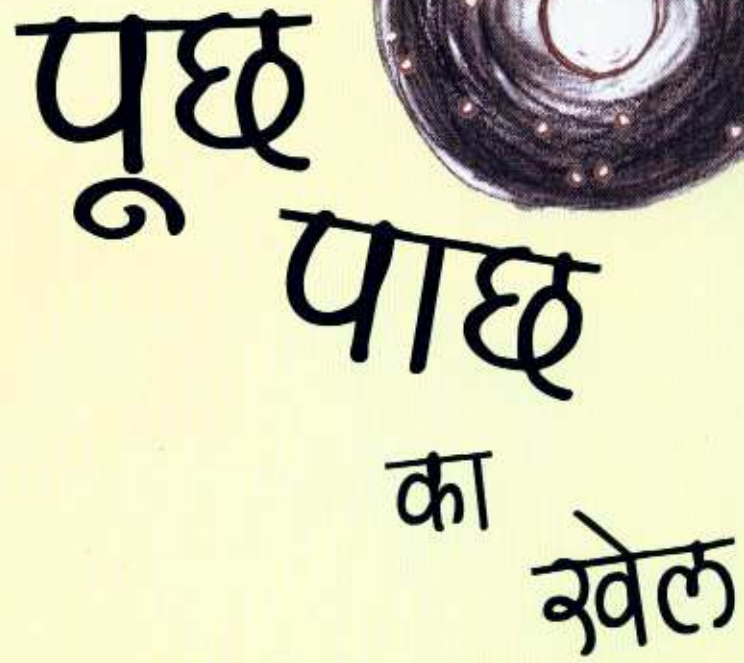 पूछ
पाछ
का
खेल